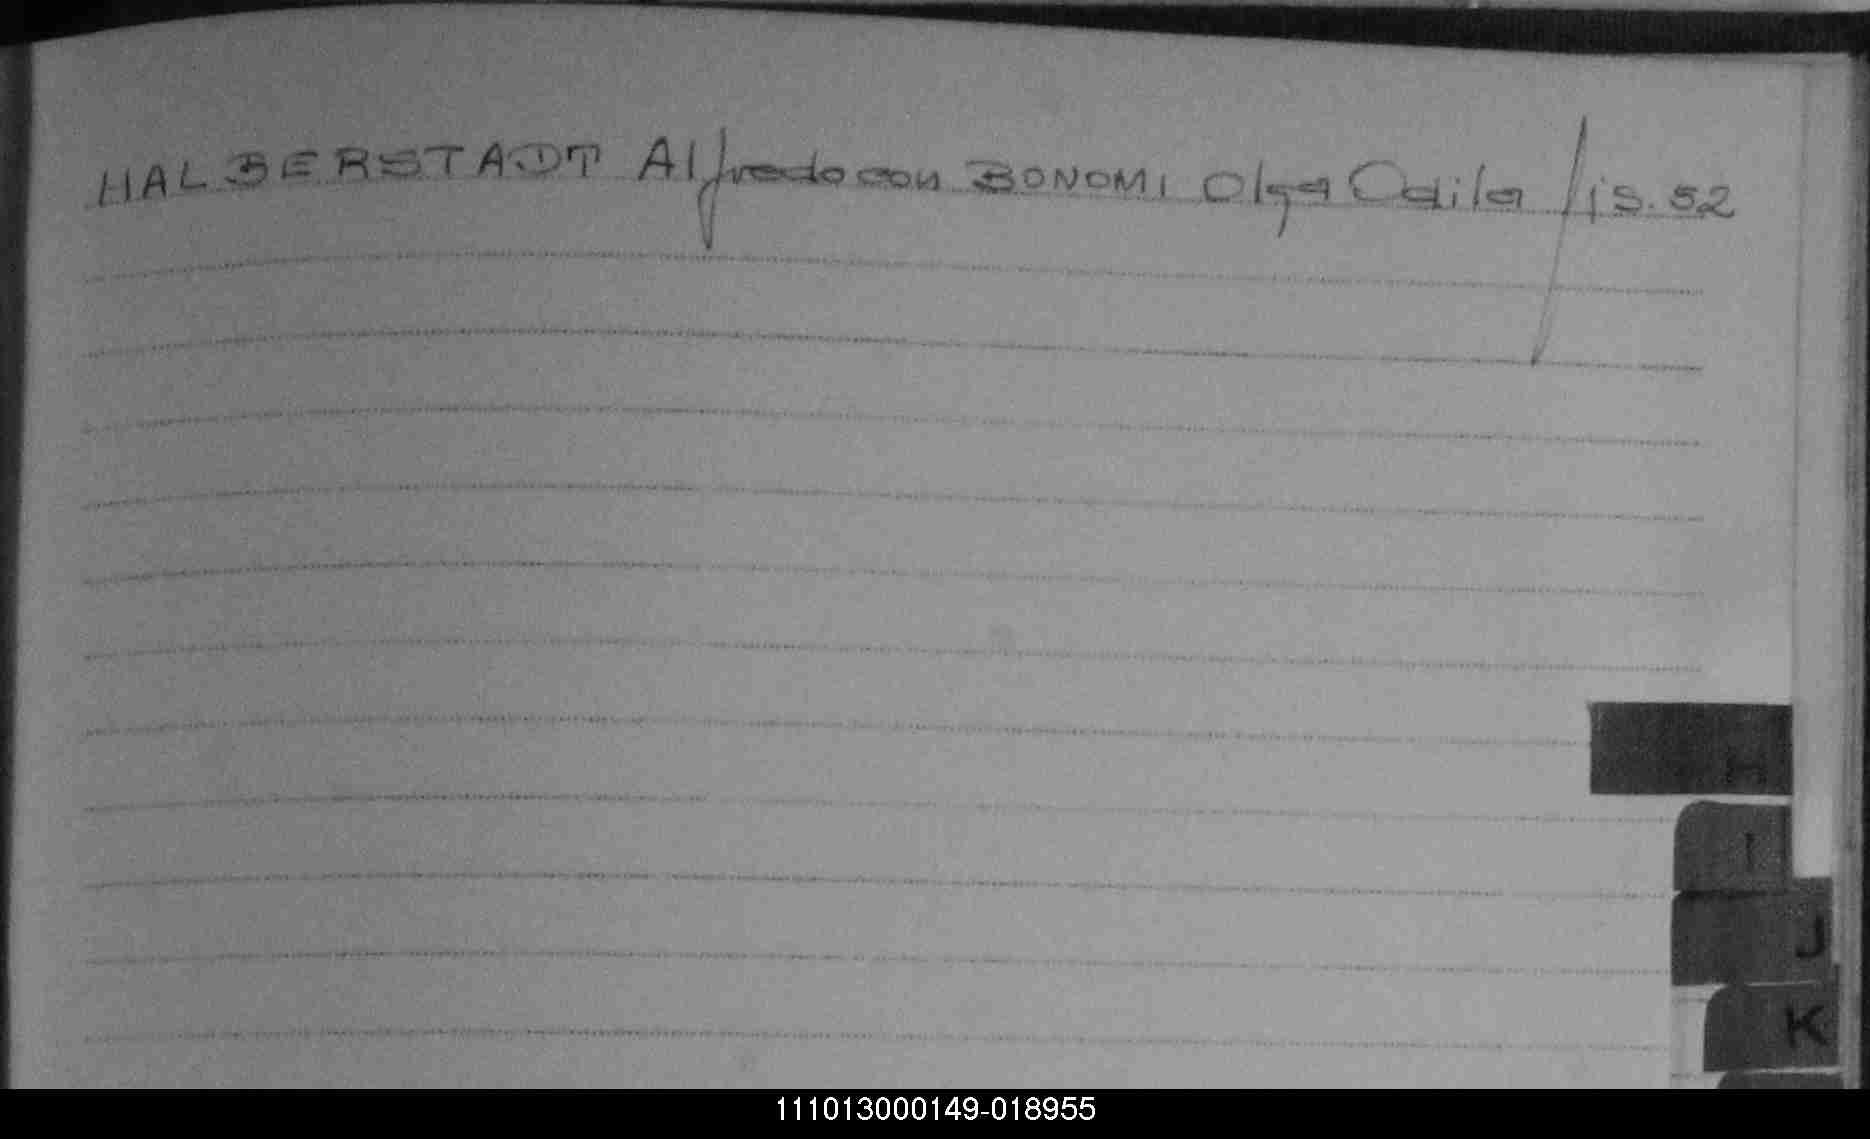 HALBERSTADT Alfredo con BONOMI Olga Odila fjs. 52
H
I
J
K
111013000149-018955